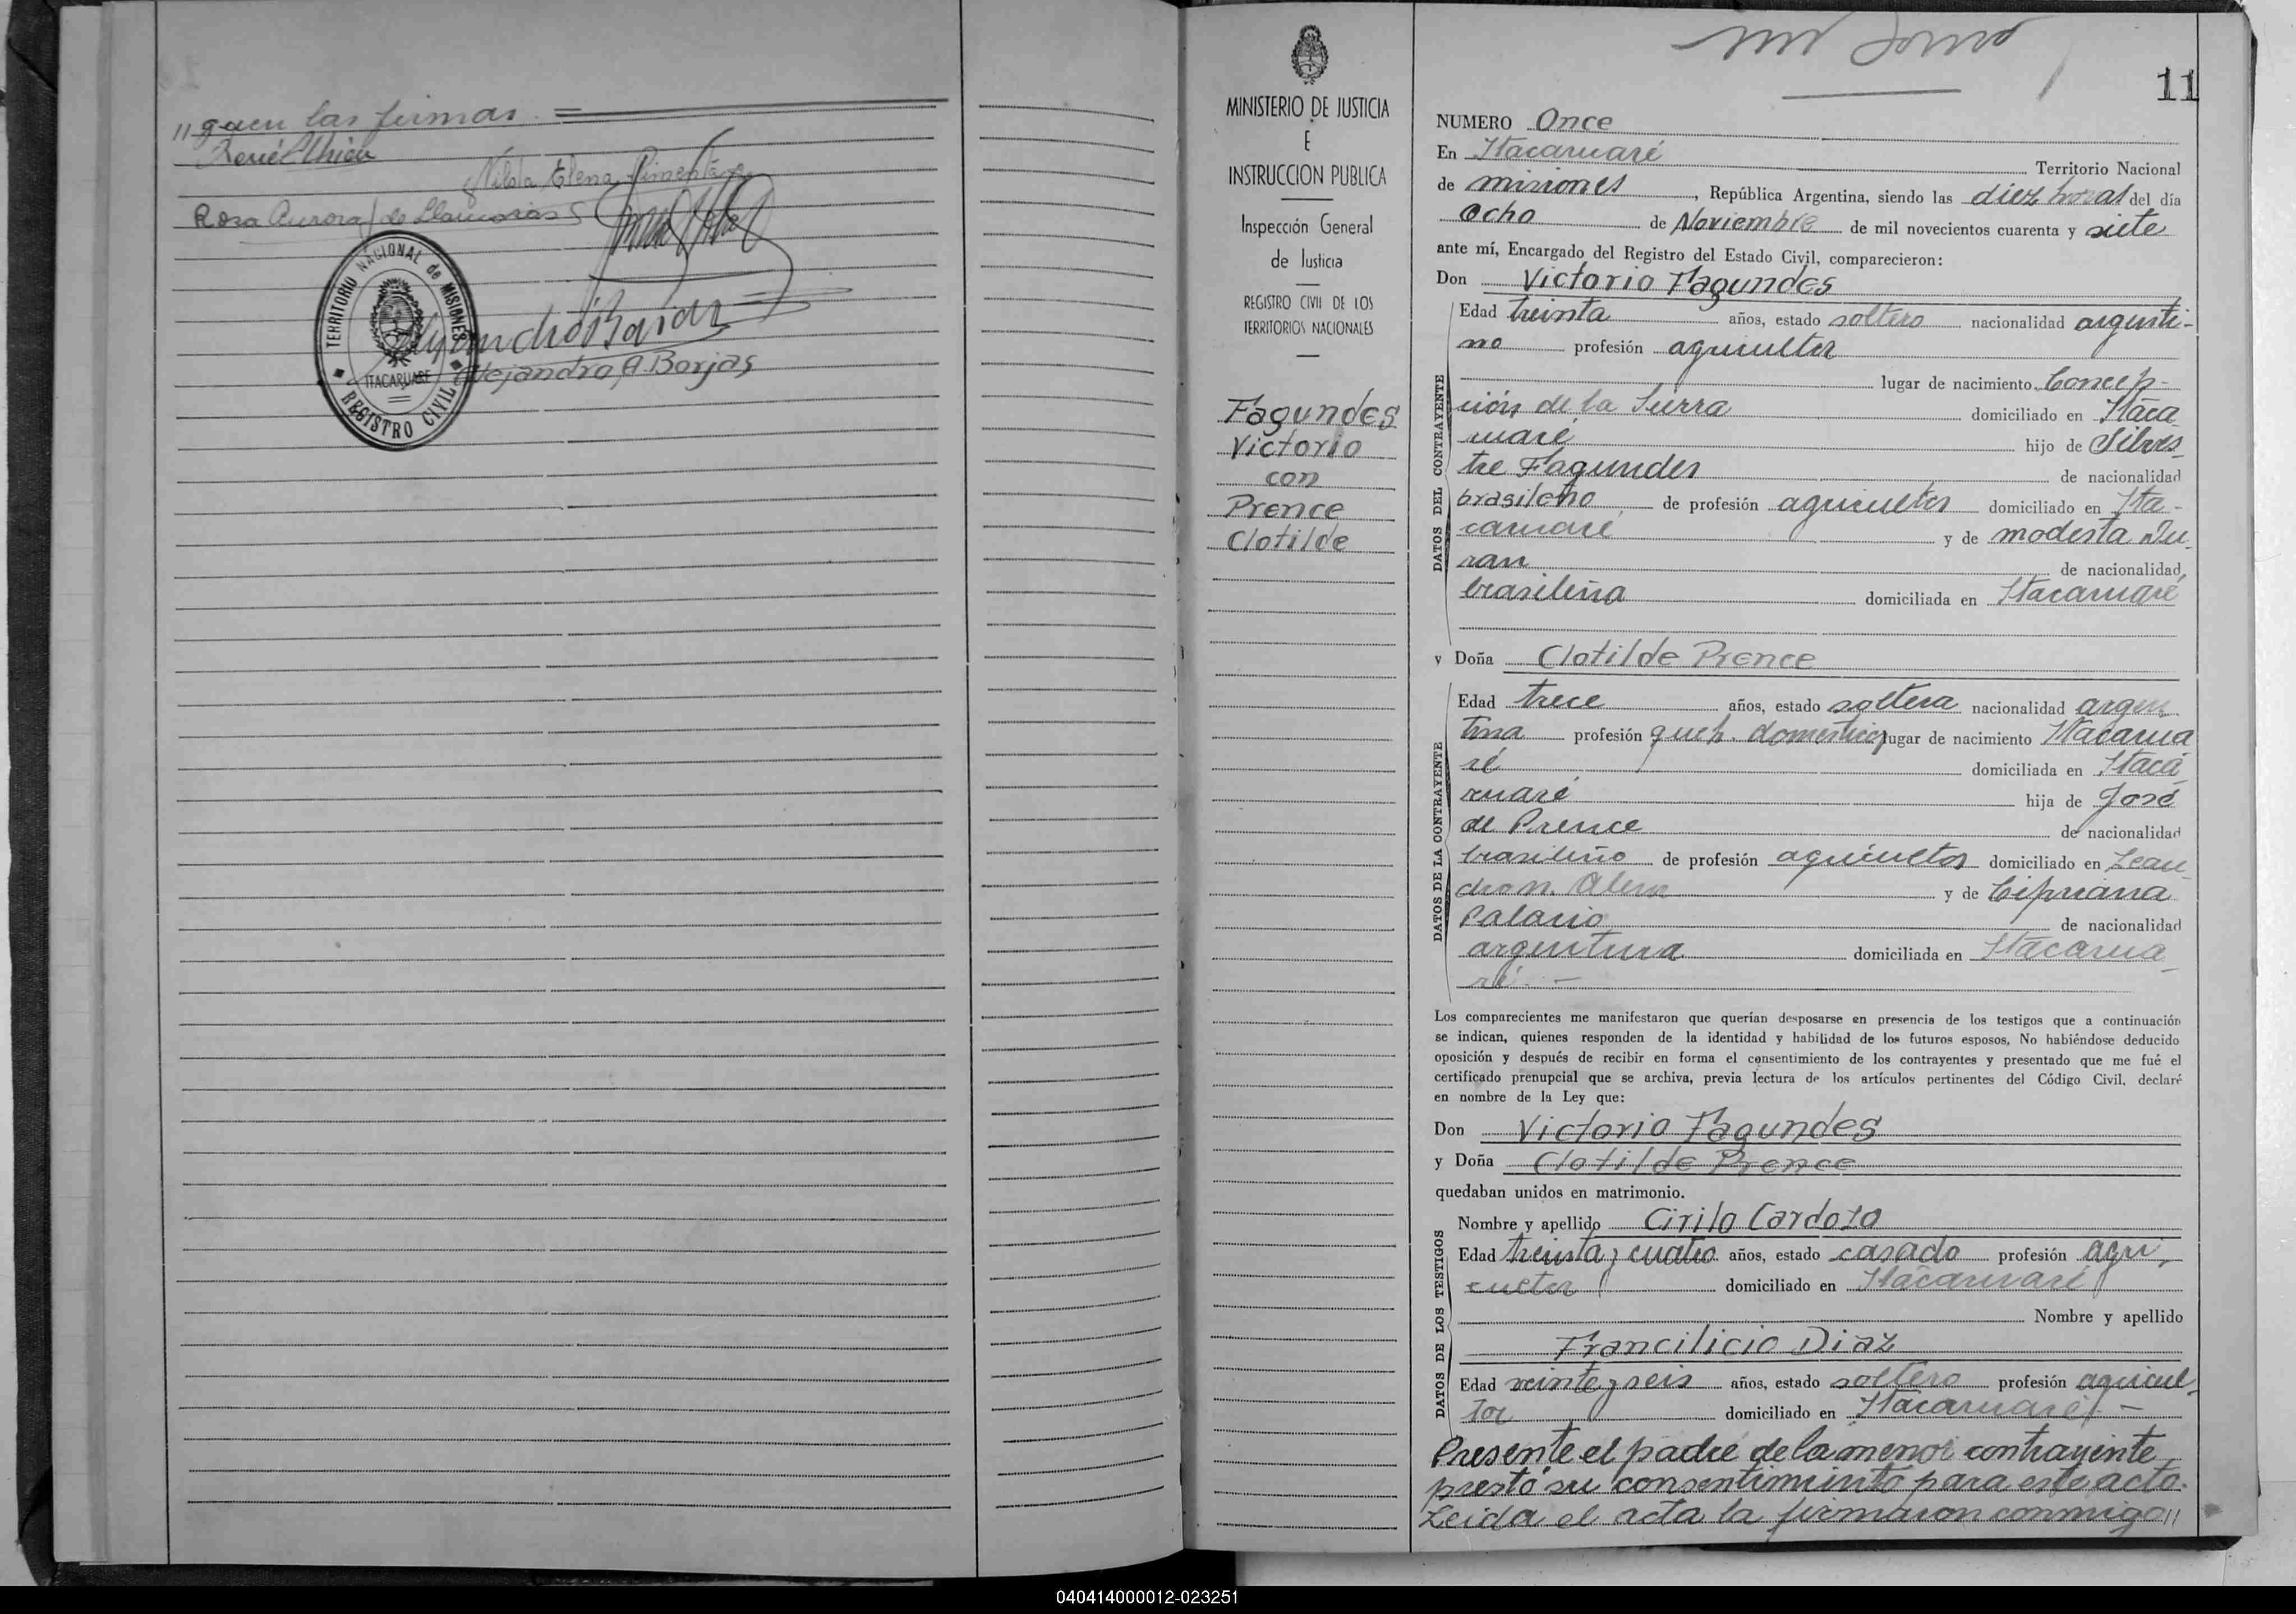 "guen las firmas.
Nilda Elena Pimentel
Rosa Aurora de Llamosas
TERRITORIO NACIONAL de MISIONES
ITACARUARE
REGISTRO CIVIL
Alejandro A. Borjas
MINISTERIO DE JUSTICIA
E
INSTRUCCION PUBLICA
Inspección General
de Justicia
REGISTRO CIVIL DE LOS
TERRITORIOS NACIONALES
Fagundes
Victorio
con
Prence
Clotilde
11
NUMERO Once
En Itacaruaré
Territorio Nacional
de misiones, República Argentina, siendo las diez horas del día
ocho de Noviembre de mil novecientos cuarenta y siete
ante mí, Encargado del Registro del Estado Civil, comparecieron:
Don Victorio Fagundes
DATOS DEL CONTRAYENTE
Edad treinta años, estado soltero nacionalidad argenti-
no profesión agricultor
lugar de nacimiento Concep-
ción de la Sierra domiciliado en Itaca
ruaré hijo de Silves-
tre Fagundes de nacionalidad
brasileño de profesión agricultor domiciliado en Ita-
caruaré y de modesta Du-
ran de nacionalidad
brasileña domiciliada en Itacaruaré
y Doña Clotilde Prence
DATOS DE LA CONTRAYENTE
Edad trece años, estado soltera nacionalidad argen
tina profesión queh. domesticos lugar de nacimiento Itacarua
ré domiciliada en Itaca
ruaré hija de José
de Prence de nacionalidad
brasileño de profesión agricultor domiciliado en Lean
dro n. Alem y de Cipriana
Palacio de nacionalidad
argentina domiciliada en Itacarua-
ré. -
Los comparecientes me manifestaron que querían desposarse en presencia de los testigos que a continuación
se indican, quienes responden de la identidad y habilidad de los futuros esposos, No habiéndose deducido
oposición y después de recibir en forma el consentimiento de los contrayentes y presentado que me fué el
certificado prenupcial que se archiva, previa lectura de los artículos pertinentes del Código Civil, declaré
en nombre de la Ley que:
Don Victorio Fagundes
y Doña Clotilde Prence
quedaban unidos en matrimonio.
DATOS DE LOS TESTIGOS
Nombre y apellido Cirilo Cardozo
Edad treinta y cuatro años, estado casado profesión agri-
cultor domiciliado en Itacaruaré
Nombre y apellido
Francilicio Diaz
Edad veinte y seis años, estado soltero profesión agricul-
tor domiciliado en Itacaruaré. -
Presente el padre de la menor contrayente
prestó su consentimiento para este acto.
Leida el acta la firmaron conmigo"
040414000012-023251